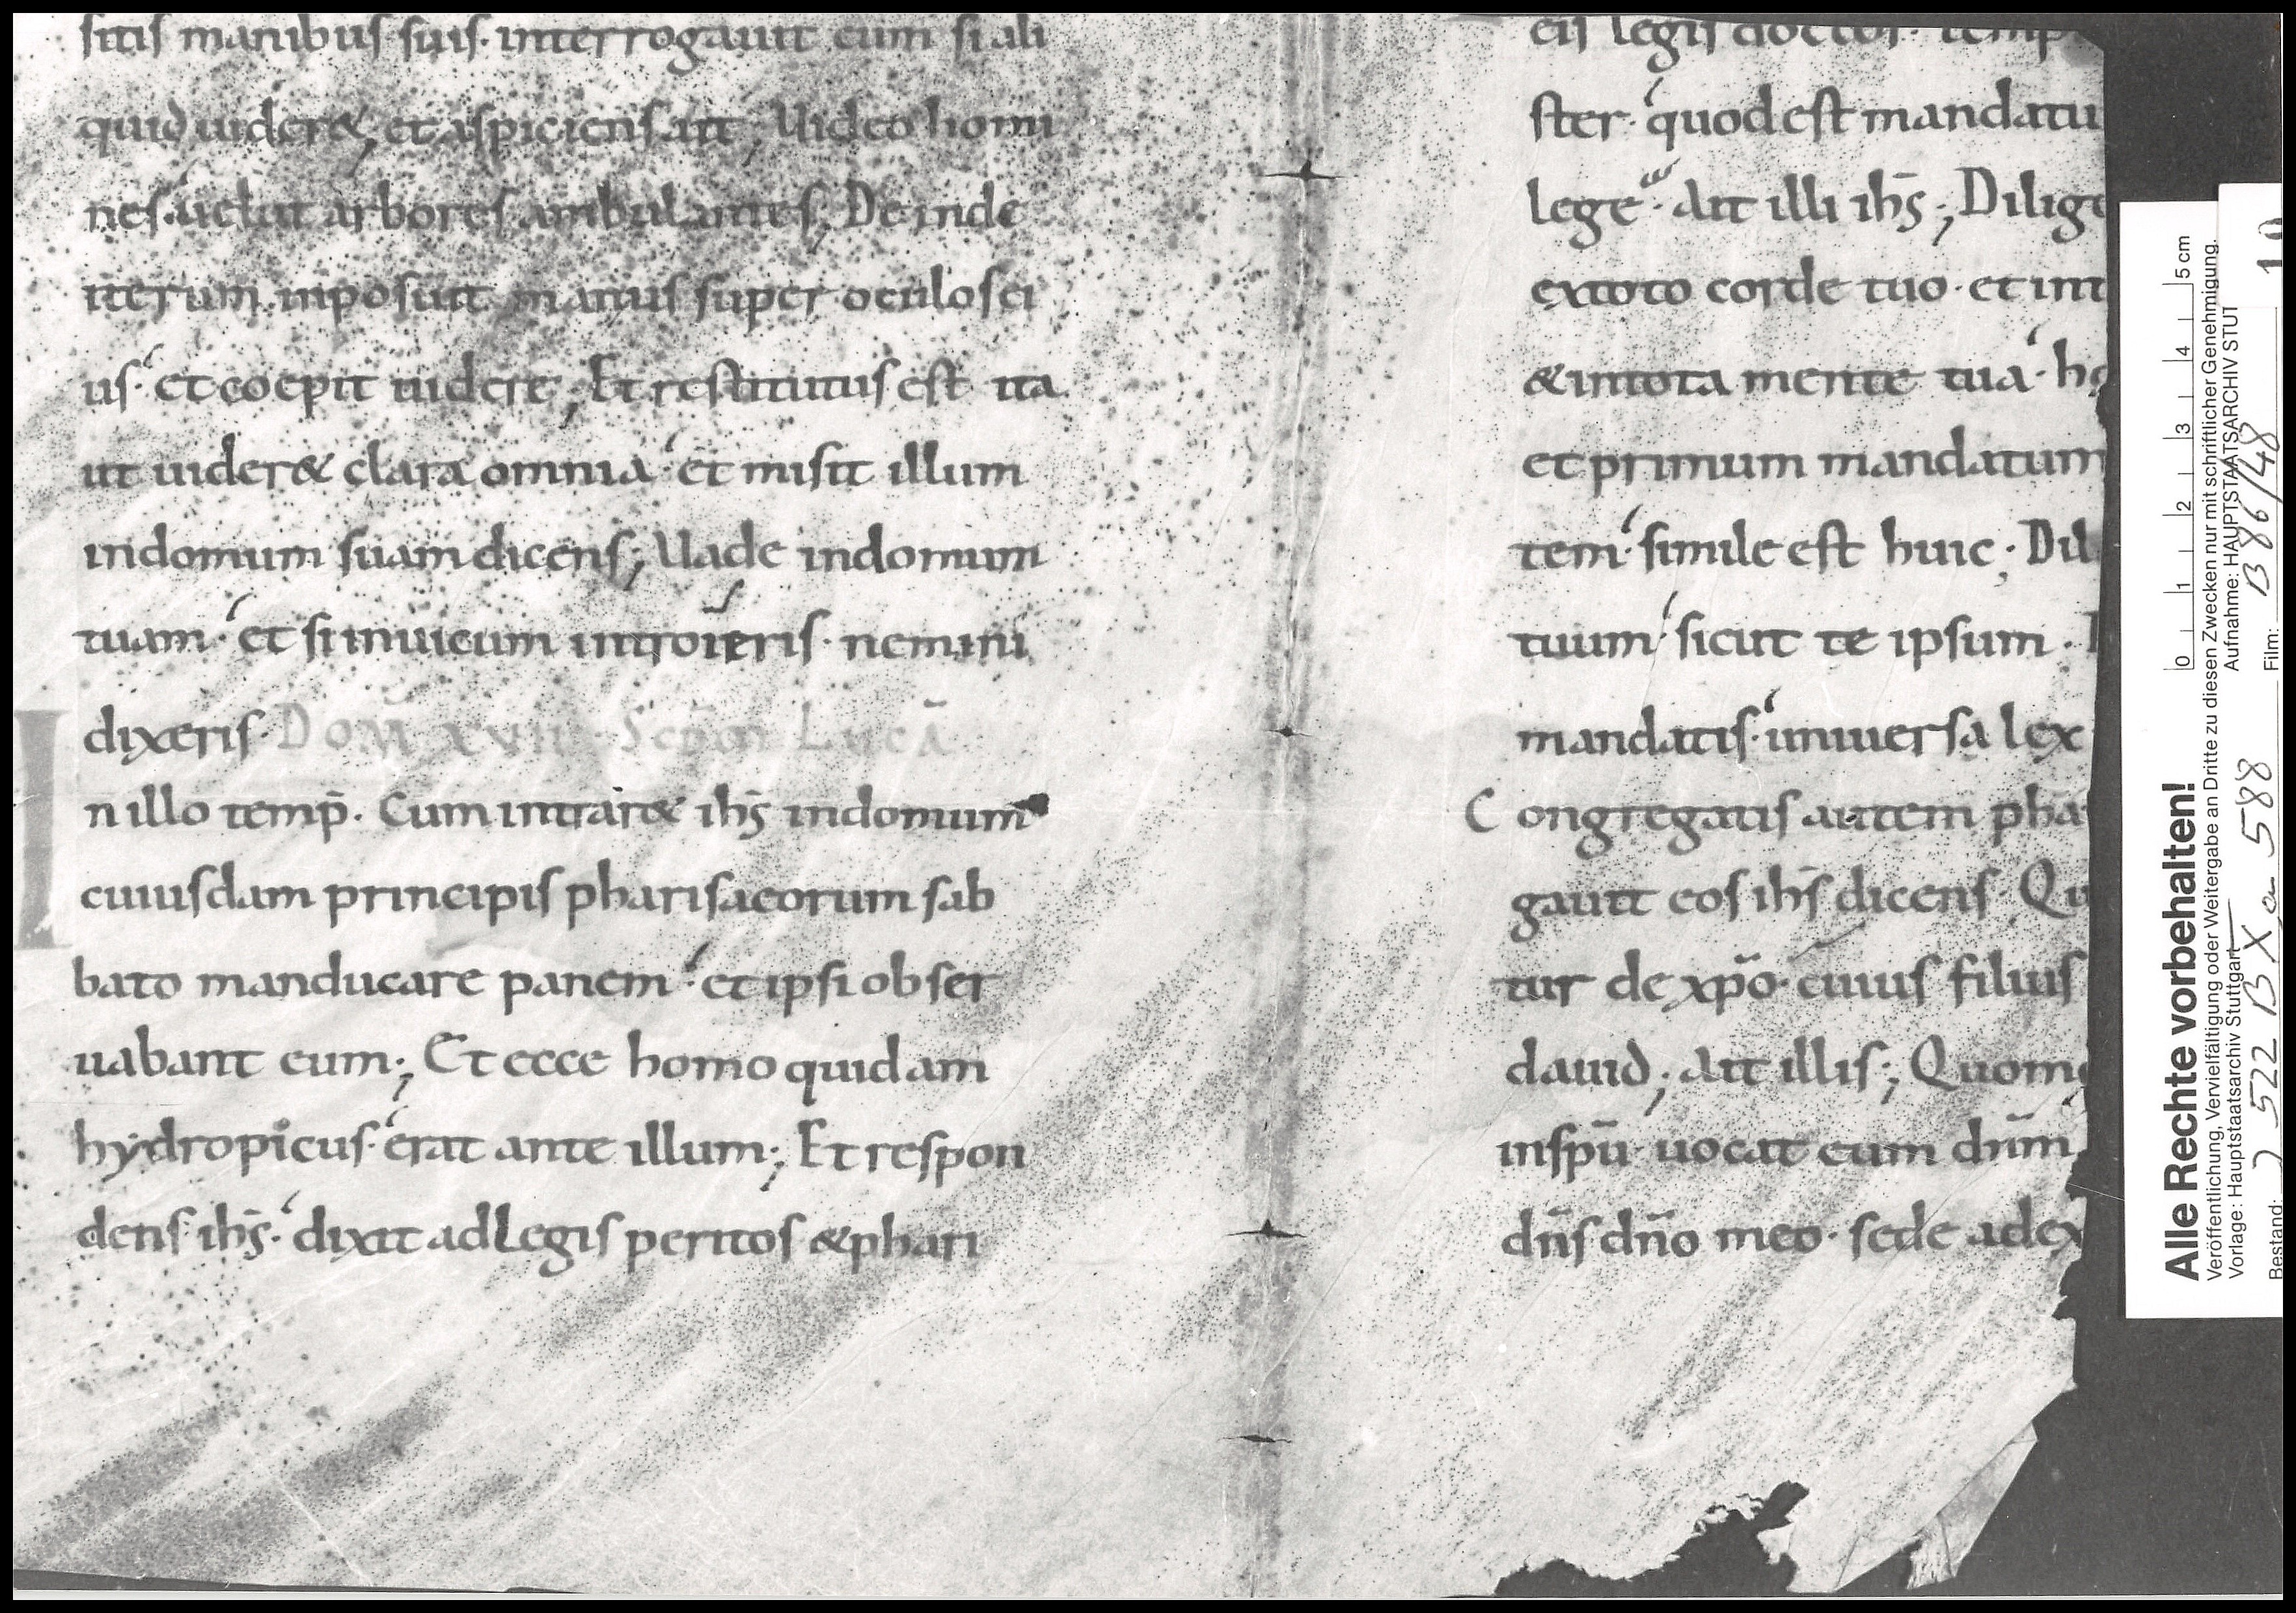 sitis manibus suis· interrogauit eum si ali
quid uider&; et aspiciens ait; Uideo homi
nes· uelut arbores ambulantes; Deinde
iterum inposuit manus super oculos ei
us· et coepit uidere; Et restitutus est ita
ut uider& clara omnia· et misit illum
indomum suam dicens; Uade indomum
tuam· et si inuicum introieris· nemini
dixeris· Dom̄ xviii Scdm̄ Lucā
I n illo temp̄. Cum intrar& ihs̄ indomum
cuiusdam principis pharisaeorum sab
bato manducare panem· et ipsi obser
uabant eum; Et ecce homo quidam
hydropicus· erat ante illum; Et respon
dens ihs̄· dixit ad legis peritos & phari
eis legis doctor· temp
ster· quod est mandatu
lege· Ait illi ihs̄; Dilige
extoto corde tuo· et int
& intota mente tua· ho
et primum mandatum
tem· simile est huic· Dil
tuum· sicut te ipsum·
mandatis· uniuersa lex
Congregatis autem pha
gauit eos ihs̄ dicens· Qu
tur de xp̄o· cuius filius
dauid; Ait illis; Quomo
inspū· uocat eum dnm̄
dn̄s dn̄o meo· sede adex
Alle Rechte vorbehalten!
Veröffentlichung, Vervielfältigung oder Weitergabe an Dritte zu diesen Zwecken nur mit schriftlicher Genehmigung.
Vorlage: Hauptstaatsarchiv Stuttgart
Aufnahme: HAUPTSTAATSARCHIV STUT
Bestand: J 522 B X a 588
Film: B 86/48
0 1 2 3 4 5 cm